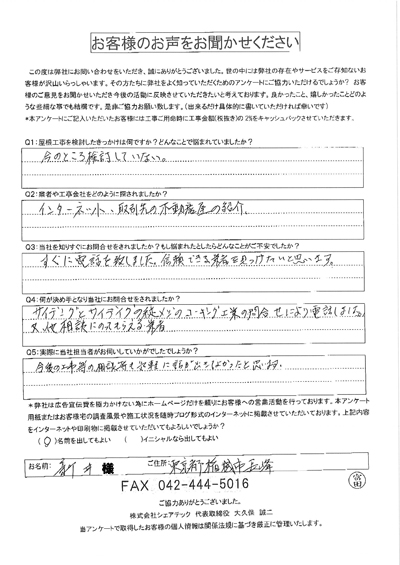 お客様のお声をお聞かせください
この度は弊社にお問い合わせをいただき、誠にありがとうございました。世の中には弊社の存在やサービスをご存知ないお
客様が沢山いらっしゃいます。その方たちに弊社をよく知っていただくためのアンケートにご協力いただけるでしょうか？ お客
様のご意見をお聞かせいただき今後の活動に反映させていただきたいと考えております。良かったこと、嬉しかったことどのよ
うな些細な事でも結構です。是非ご協力お願い致します。（出来るだけ具体的に書いていただければ幸いです）
*本アンケートにご記入いただいたお客様には工事ご用命時に工事金額(税抜き)の2%をキャッシュバックさせていただきます。
Q1:屋根工事を検討したきっかけは何ですか？どんなことで悩まれていましたか？
今のところ検討していない。
Q2:業者や工事会社をどのように探されましたか？
インターネット、取引先の不動産屋の紹介、
Q3:当社を知りすぐにお問合せをされましたか？もし悩まれたとしたらどんなことがご不安でしたか？
すぐに電話を致しました。信頼できる業者を見つけたいと思います。
Q4:何が決め手となり当社にお問合せをされましたか？
サイディングとサイディングの縦メジのコーキング工事の問合せにより電話しました。
又、他相談にのってもらえる業者
Q5:実際に当社担当者がお伺いしていかがでしたでしょうか？
今後の工事等の相談等も
*弊社は広告宣伝費を極力かけない為にホームページだけを頼りにお客様への営業活動を行っております。本アンケート
用紙またはお客様宅の調査風景や施工状況を随時ブログ形式のインターネットに掲載させていただいております。上記内容
をインターネットや印刷物に掲載させていただいてもよろしいでしょうか？
（○）名前を出してもよい （ ）イニシャルなら出してもよい
お名前: 新井 様 ご住所: 東京都稲城市長峰
FAX 042-444-5016
ご協力ありがとうございました。
株式会社シェアテック 代表取締役 大久保 誠二
当アンケートで取得したお客様の個人情報は関係法規に基づき厳正に管理いたします。